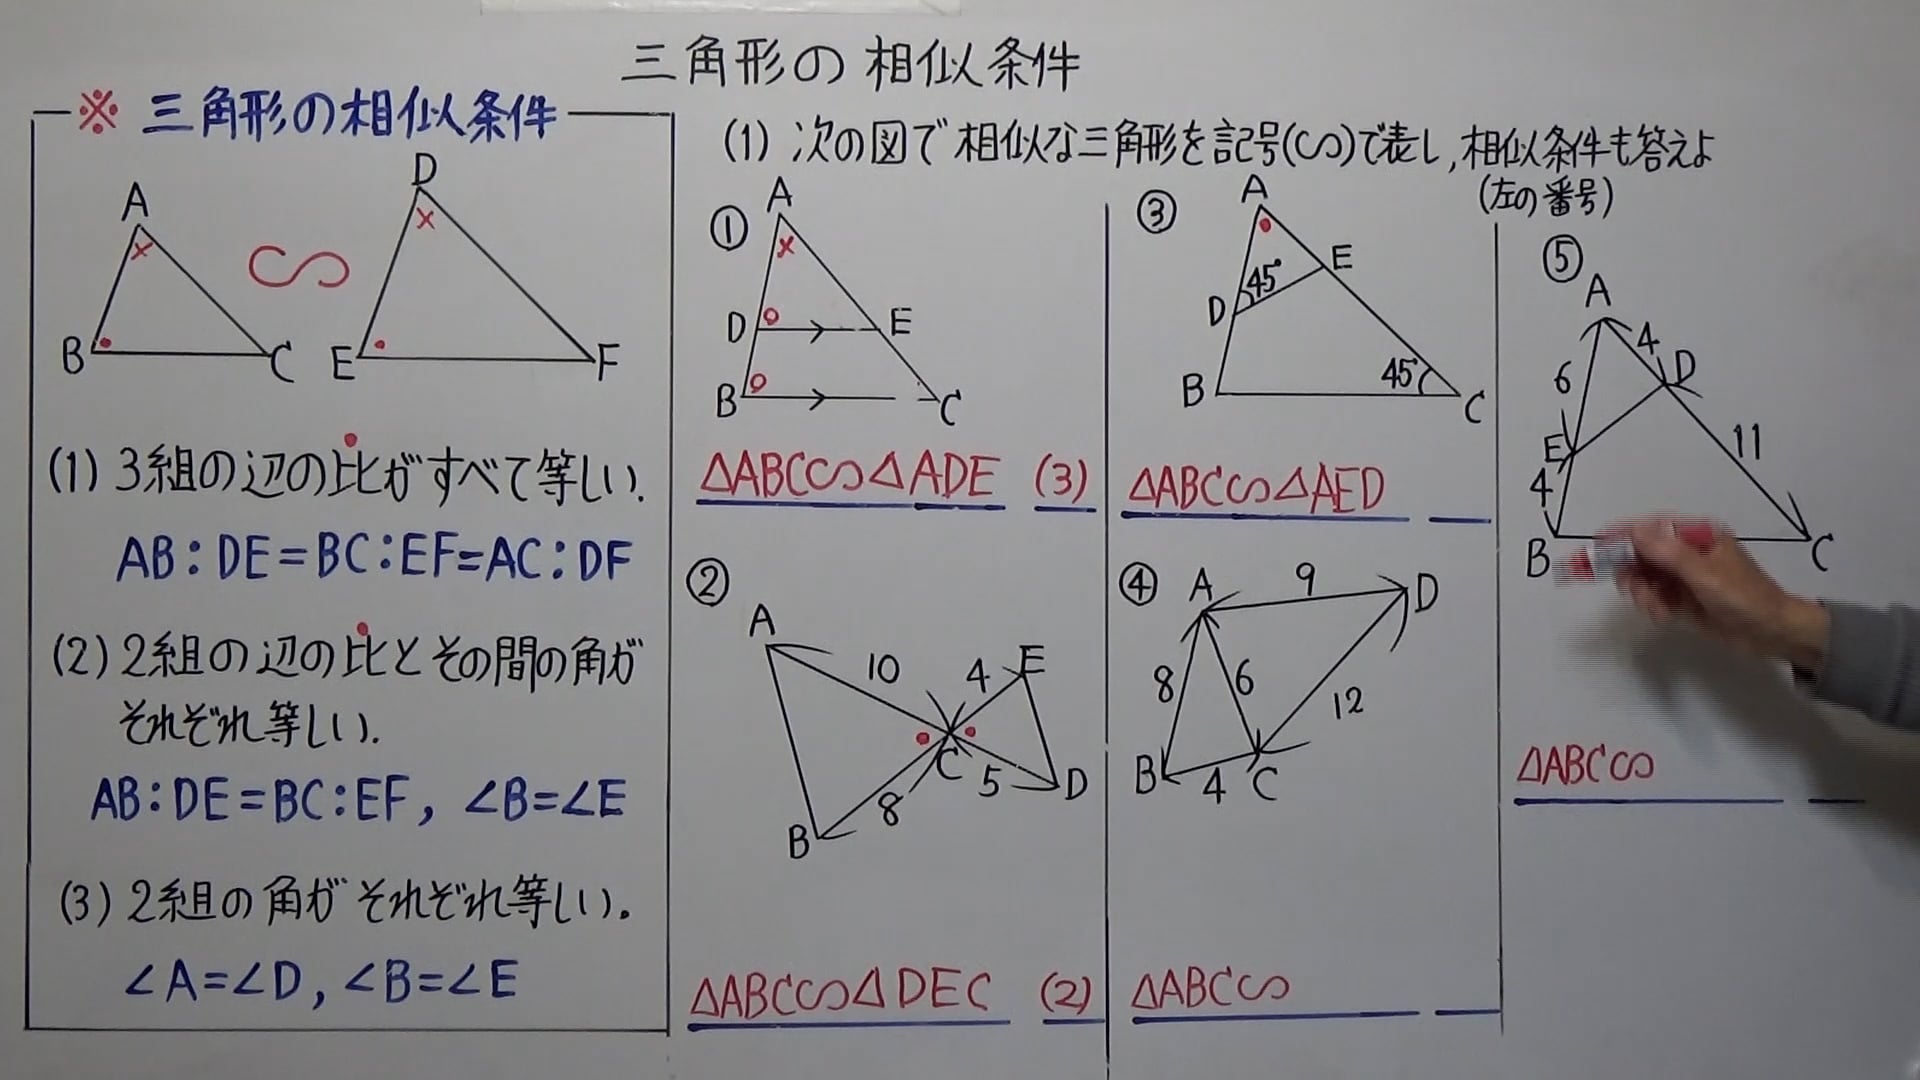 三角形の相似条件
※ 三角形の相似条件
A
B
C
∽
D
E
F
(1) 3組の辺の比がすべて等しい.
AB:DE=BC:EF=AC:DF
(2) 2組の辺の比とその間の角が
それぞれ等しい.
AB:DE=BC:EF, ∠B=∠E
(3) 2組の角がそれぞれ等しい.
∠A=∠D, ∠B=∠E
(1) 次の図で相似な三角形を記号(∽)で表し,相似条件も答えよ
(左の番号)
①
A
×
D
E
B
C
△ABC∽△ADE (3)
②
A
10
4
E
C
5
D
8
B
△ABC∽△DEC (2)
③
A
E
45°
D
B
45°
C
△ABC∽△AED
④
A
9
D
8
6
12
B
4
C
△ABC∽
⑤
A
4
D
6
E
11
4
B
C
△ABC∽